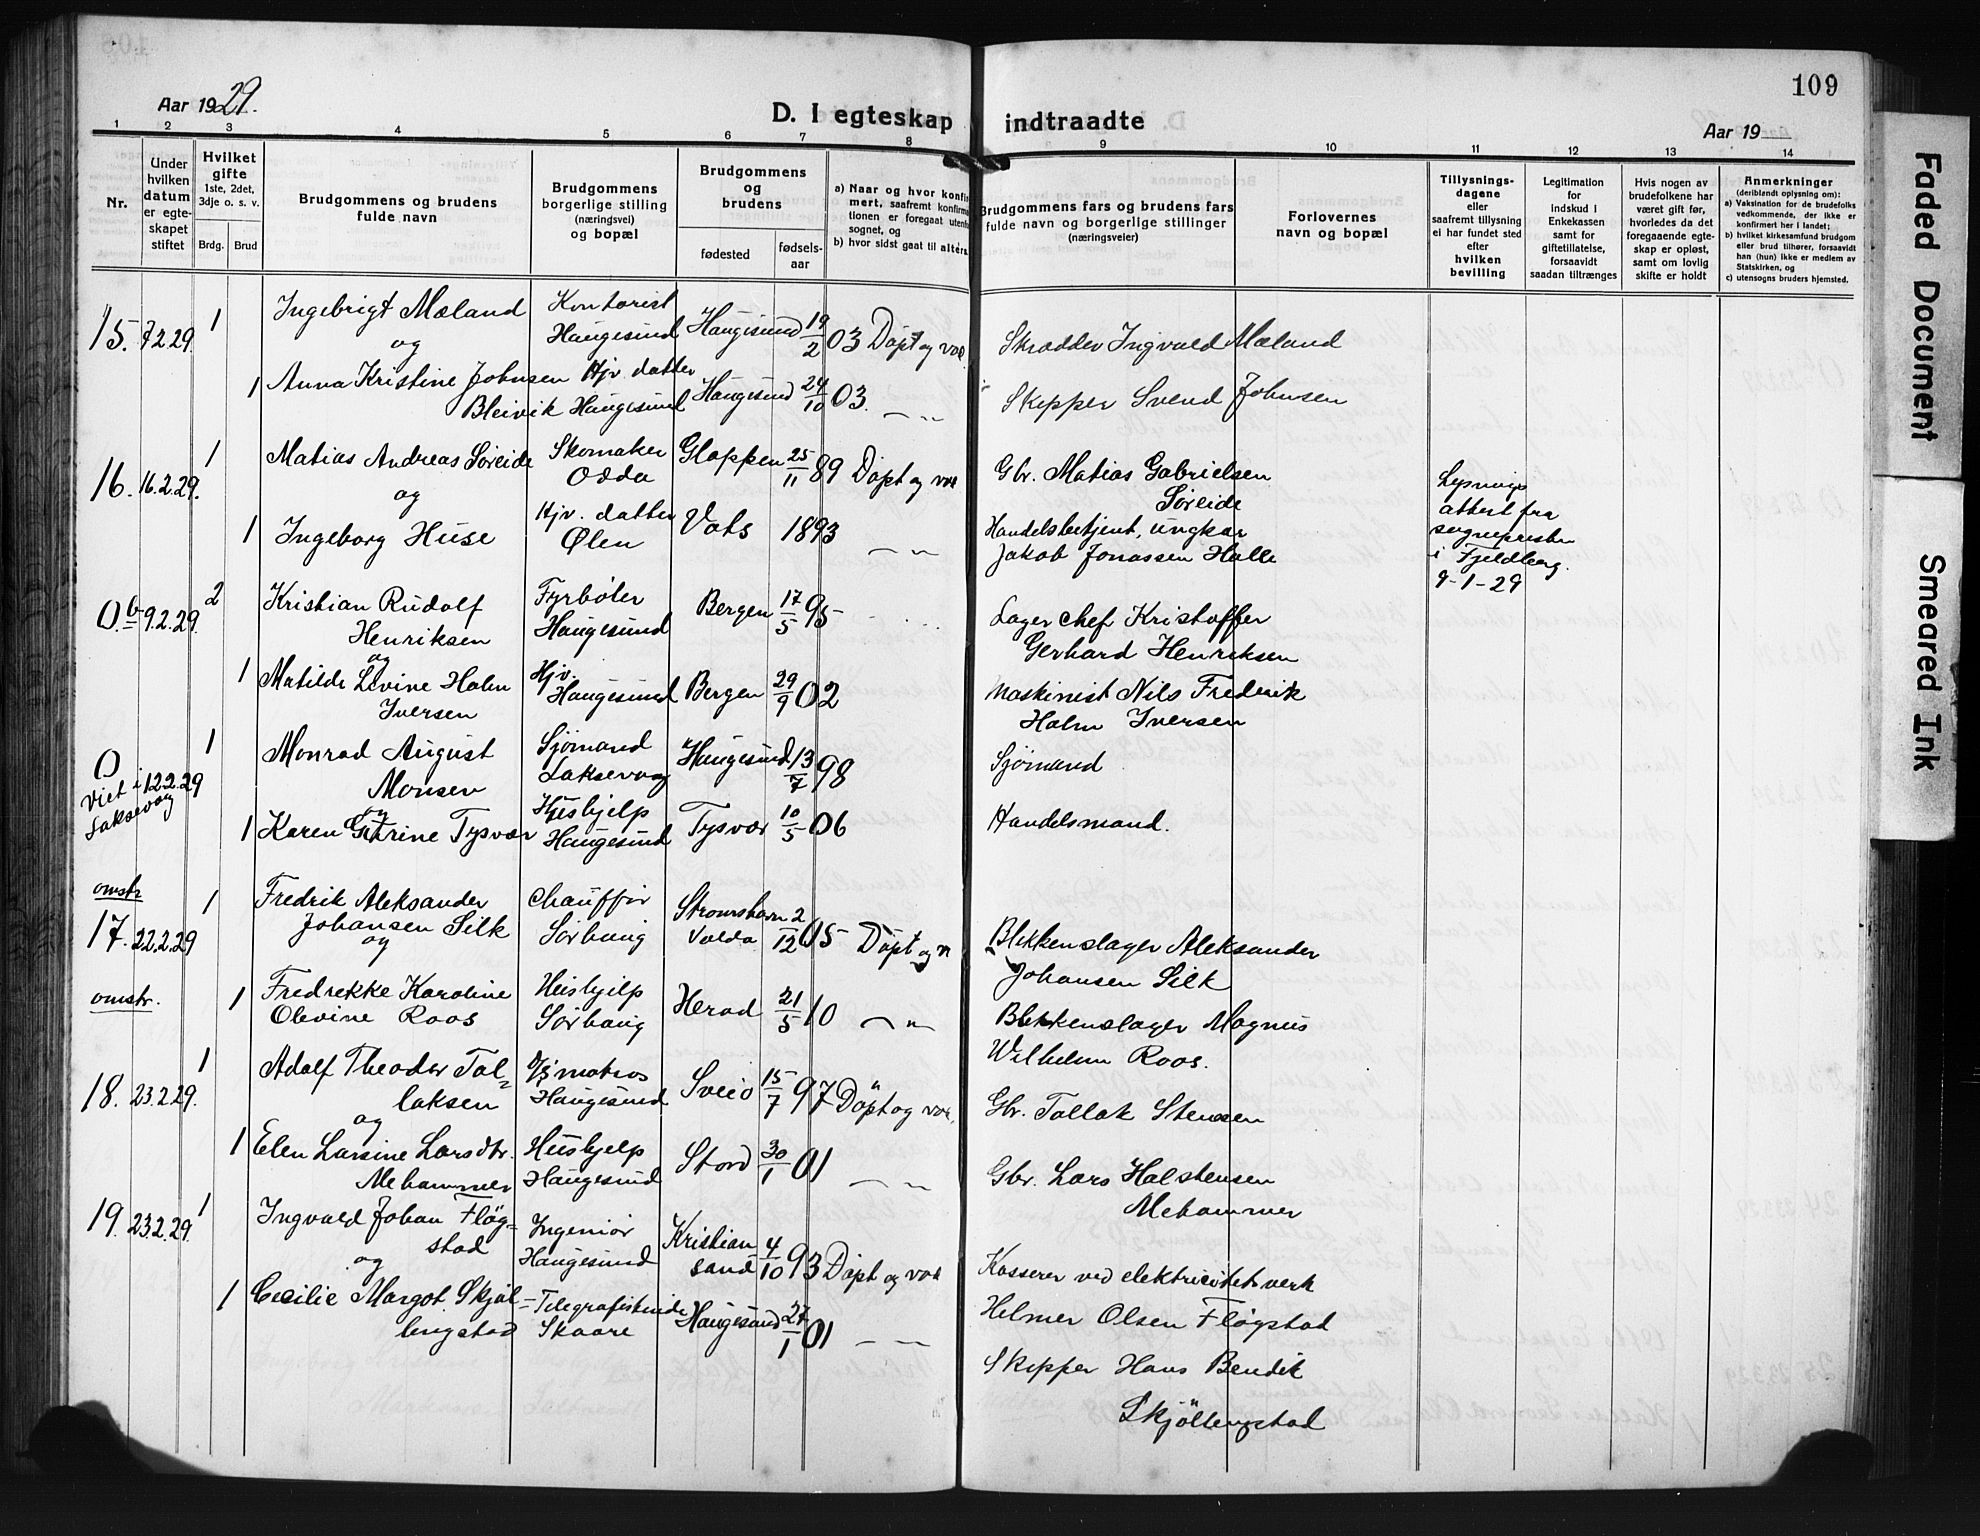 109
Aar 1929.
D. I egteskap indtraadte
Aar 19
1 2 3 4 5 6 7 8 9 10 11 12 13 14
Nr.
Under hvilken datum er egteskapet stiftet
Hvilket gifte 1ste, 2det, 3dje o. s. v.
Brdg. Brud
Brudgommens og brudens fulde navn
Brudgommens borgerlige stilling (næringsvei) og bopæl
Brudgommens og brudens
fødested
fødsels-aar
a) Naar og hvor konfir
mert, saafremt konfirma
tionen er foregaat utenfo
sognet, og
b) hvor sidst gaat til alters.
Brudgommens fars og brudens fars
fulde navn og borgerlige stillinger
(næringsveier)
Forlovernes
navn og bopæl
Tillysnings-
dagene
eller
saafremt tillysning
ei har fundet sted
efter
hvilken
bevilling
Legitimation
for
indskud i
Enkekassen
samt for
giftetillatelse,
forsaavidt
saadan tiltrænges
Hvis nogen av
brudefolkene har
været gift før,
hvorledes da det
foregaaende egte-
skap er opløst,
samt om lovlig
skifte er holdt
Anmerkninger
(deriblandt oplysning om):
a) Vaksination for de brudefolks
vedkommende, der ikke er
konfirmert her i landet;
b) hvilket kirkesamfund brudgom
eller brud tilhører, forsaavidt
han (hun) ikke er medlem av
Statskirken, og
c) utensogns bruders hjemsted.
15. 7.2.29. 1 Ingebrigt Mæland Kontorist Haugesund Haugesund 19/2 03 Døpt og vac Skrædder Ingvald Mæland
og
1 Anna Kristine Johnsen Bleivik Hjv. datter Haugesund Haugesund 24/10 03. — „ Skipper Svend Johnsen
16. 16.2.29. 1 Matias Andreas Søreide Skomaker Odda Gloppen 25/11 89 Døpt og vac Gbr. Matias Gabrielsen Søreide
og
1 Ingeborg Huse Hjv. datter Ølen Vats 1893 — „ Handelsbetjent, ungkar Jakob Jonassen Halle
Lysnings
attest fra
sognepresten
i Fjeldberg.
9-1-29
0.b 9.2.29. 2 Kristian Rudolf Henriksen Fyrbøter Haugesund Bergen 17/5 95 Lager chef Kristoffer Gerhard Henriksen
og
1 Matilde Levine Holm Iversen Hjv. Haugesund Bergen 29/9 02 Maskinist Nils Frederik Holm Iversen
0 Viet i Laksevaag 12.2.29 1 Monrad August Monsen Sjømand Laksevaag Haugesund 13/7 98 Sjømand
og
1 Karen Tysvær Hushjelp Haugesund Tysvær 10/5 06 Handelsmand.
omstr
17. 22.2.29 1 Fredrik Aleksander Johansen Silk Chauffør Sørhaug Volda 2/12 05 Døpt og v Blikkenslager Aleksander Johansen Silk
og
omstr. 1 Fredrekke Karoline Olevine Roos Hushjelp Sørhaug Herad 21/5 10 — „ Blikkenslager Magnus Wilhelm Roos.
18. 23.2.29. 1 Adolf Theodor Tol= laksen matros Haugesund Sveio 15/7 97 Døpt og vac. Gbr. Tollak Stensen
og
1 Elen Larsine Larsdtr. Mehammer Hushjelp Haugesund Stord 30/1 01 — „ Gbr. Lars Halstensen Mehammer
19. 23.2.29. 1 Ingvald Johan Fløg= stad Ingeniør Haugesund Kristian sand 4/10 93 Døpt og vac Kasserer ved elektricitetsverk Helmer Olsen Fløgstad
og
1 Cecilie Margot Skjøl= lengstad Telegrafistinde Skaare Haugesund 27/1 01 — Skipper Hans Bendik Skjøllengstad
Faded Document
Smeared Ink